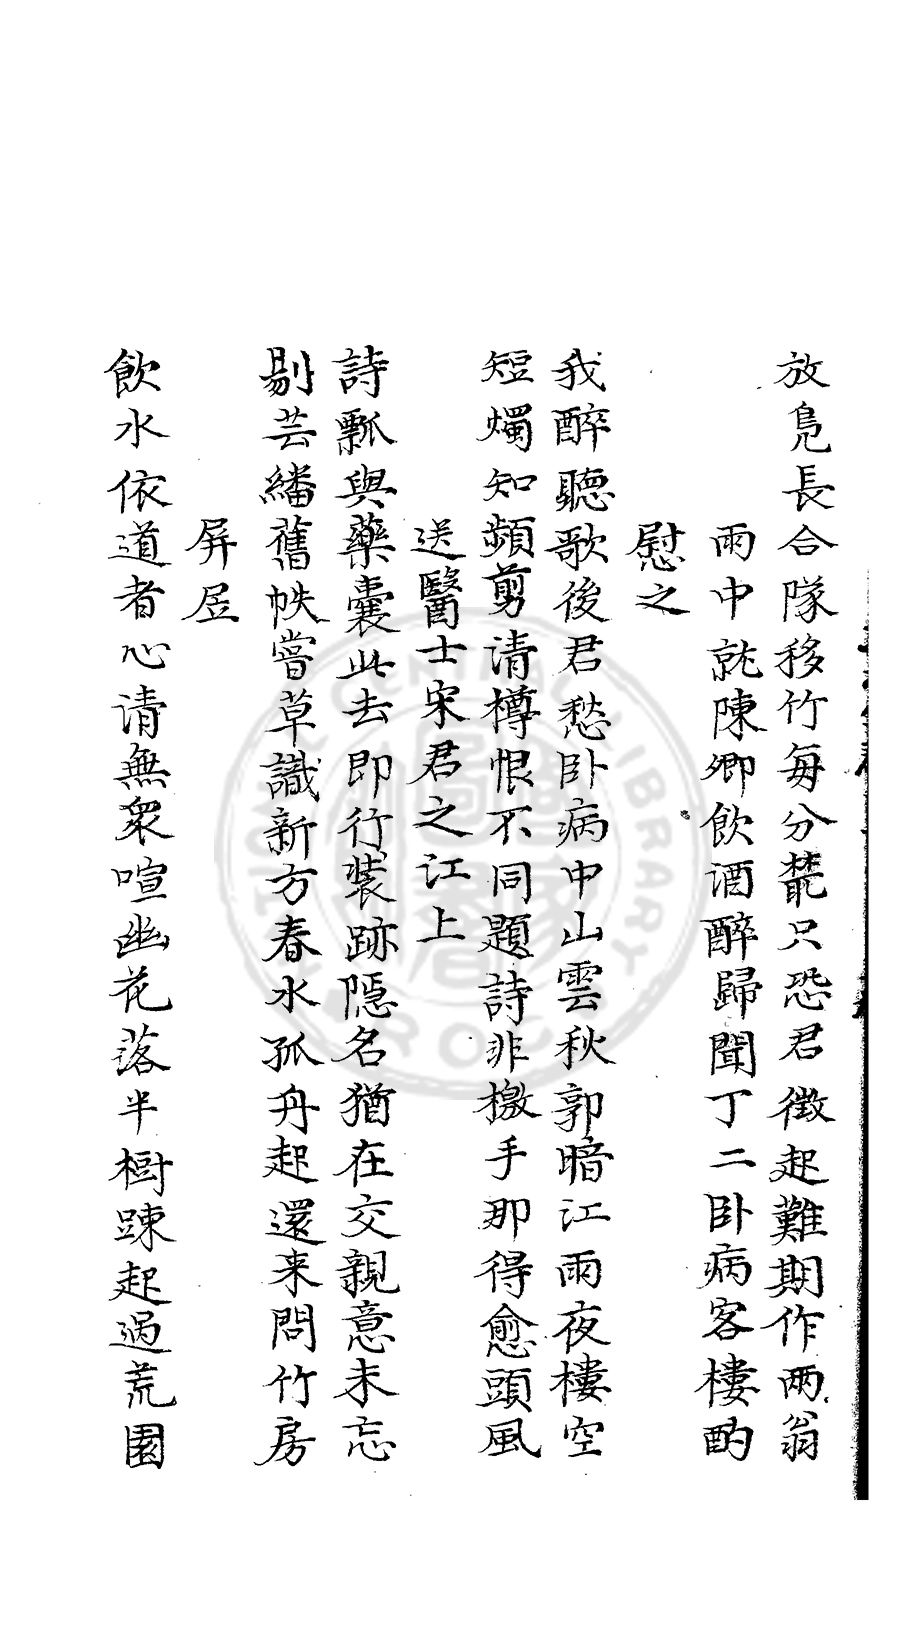 放鳧長合隊移竹每分叢只恐君徵起難期作兩翁
雨中就陳卿飲酒醉歸聞丁二卧病客樓酌
慰之
我醉聽歌後君愁卧病中山雲秋郭暗江雨夜樓空
短燭知頻剪清樽恨不同題詩非檄手那得愈頭風
送醫士宋君之江上
詩瓢與藥囊此去即行裝跡隱名猶在交親意未忘
剔芸繙舊帙嘗草識新方春水孤舟起還来問竹房
屏居
飲水依道者心清無衆喧幽花落半樹踈起過荒園
CENTRAL LIBRARY
R.O.C.